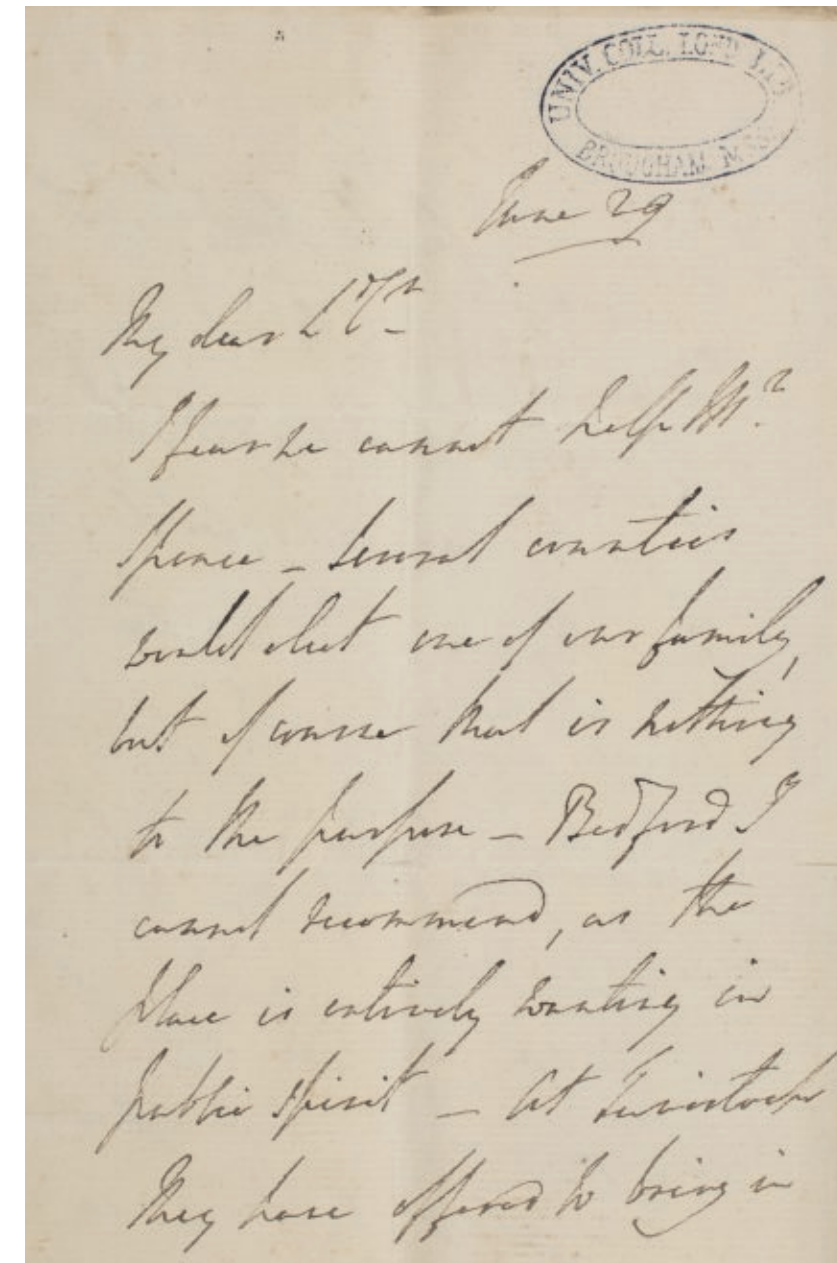 UNIV. COLL. LOND. LIB.
BROUGHAM MSS
June 29
My dear Ld Ch
I fear we cannot help Mr.
Spence – Several counties
would elect one of our family,
but of course that is nothing
to the purpose – Bedford I
cannot recommend, as the
place is entirely wanting in
public spirit – At Tavistock
they have offered to bring in